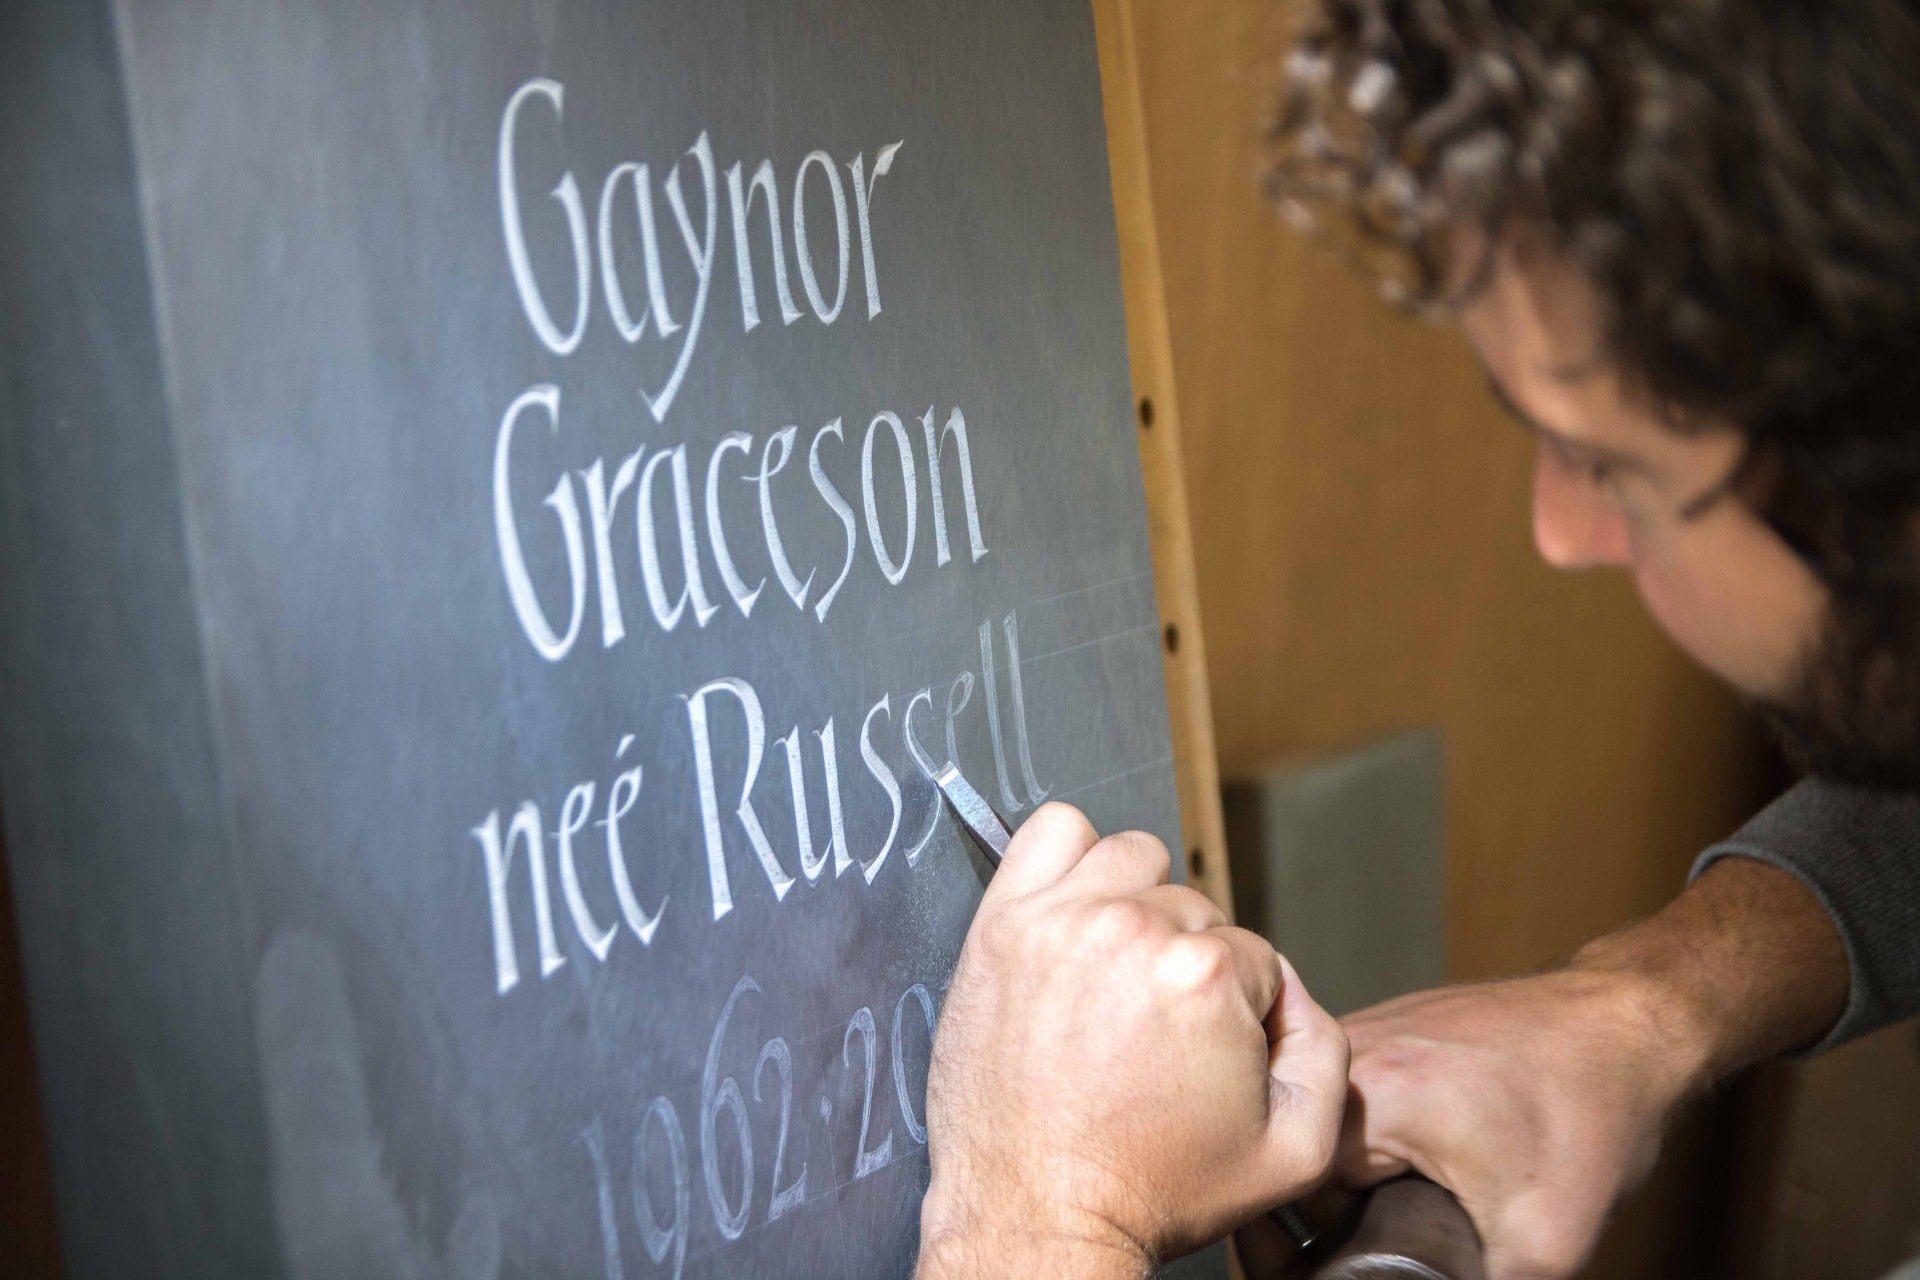 Gaynor
Graceson
neé Russell
1962·20